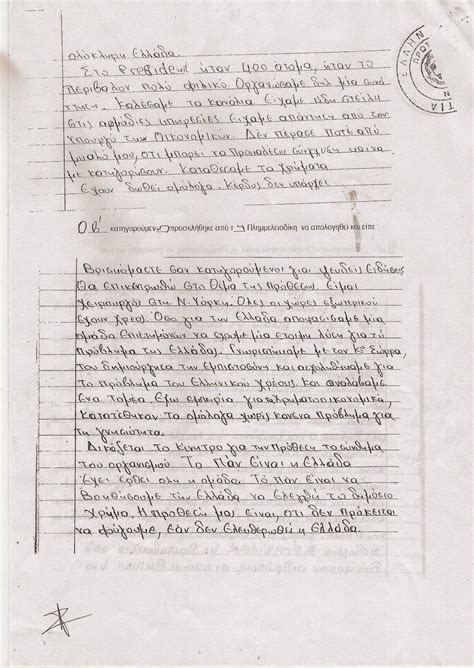 ολόκληρη Ελλάδα.
Στο President ήταν 400 άτομα, ήταν το
περιβάλον πολύ φιλικό. Οργανώσαμε μία συνά
ντηση. Καλέσαμε τα κανάλια είχαμε ήδη στείλει
στις αρμόδιες υπηρεσίες είχαμε απάντηση από τον
Υπουργό των Οικονομικών. Δεν πέρασε ποτέ από
μυαλό μου, ότι μπορεί να προκαλέσω σύγχυση και να
με κατηγορήσουν. Καταθέσαμε τα χρήματα
Έχουν δωθεί ομόλογα. Κέρδος δεν υπάρχει
Ο Β' κατηγορούμεν προσκλήθηκε από τ Πλημμελειοδίκη να απολογηθεί και είπε:
Βρισκόμαστε σαν κατηγορούμενοι για ψευδείς ειδήσεις
Θα επικεντρωθώ στο θέμα της πρόθεσης. Είμαι
χειρουργός στη Ν. Υόρκη. Όλες οι χώρες εξωτερικού
έχουν χρέος. Όσο για την Ελλάδα αποφασίσαμε μία
ομάδα επιστημόνων να έχουμε μία έτοιμη λύση για το
πρόβλημα της Ελλάδας. Γνωριστήκαμε με τον Κο Σώρρα,
του δημιούργησα την εμπιστοσύνη και ασχοληθήκαμε για
το πρόβλημα του Ελληνικού χρέους. Και αναλάβαμε
ένα τομέα. Έχω εμπειρία για χρηματοπιστωτικά,
κατατέθηκαν τα ομόλογα χωρίς κανένα πρόβλημα για
τη γνησιότητα.
Δικάζεται το κίνητρο για την πρόθεση το σύνθημα
του οργανισμού Το Παν Είναι η Ελλάδα
Έχει έρθει όλη η ομάδα. Το Παν Είναι να
βοηθήσουμε την Ελλάδα να ελεγχθεί το δημόσιο
χρήμα. Η πρόθεσή μας είναι, ότι δεν πρόκειται
να φύγουμε, εάν δεν ελευθερωθεί η Ελλάδα.